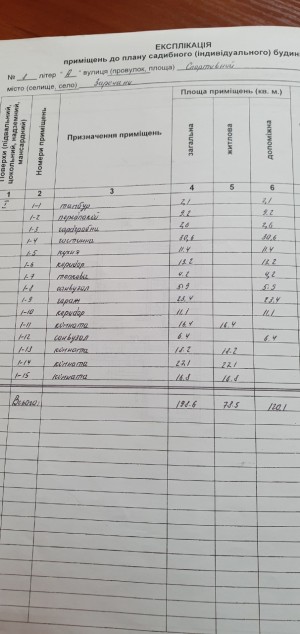 ЕКСПЛІКАЦІЯ
приміщень до плану садибного (індивідуального) будин
№ літер " А " вулиця (провулок, площа) Спортивний
місто (селище, село)
Поверхи (підвальний, цокольний, надземний, мансардний) Номери приміщень Призначення приміщень Площа приміщень (кв. м.)
загальна житлова допоміжна
1 2 3 4 5 6
I 1-1 тамбур 2,1 2,1
1-2 9.2 9.2
1-3 гардеробна 2,6
1-4 30,6 30,6
1-5 кухня 11.4 11.4
1-6 коридор 13.2 13.2
1-7 4.2 4,2
1-8 санвузол 5.9 5.9
1-9 гараж 23,4 23,4
1-10 коридор 11.1 11.1
1-11 кімната 16,4 16,4
1-12 санвузол 6.4 6.4
1-13 кімната 18.2 18.2
1-14 кімната 22,1 22,1
1-15 кімната 16.8 16.8
Всього: 198.6 120,1